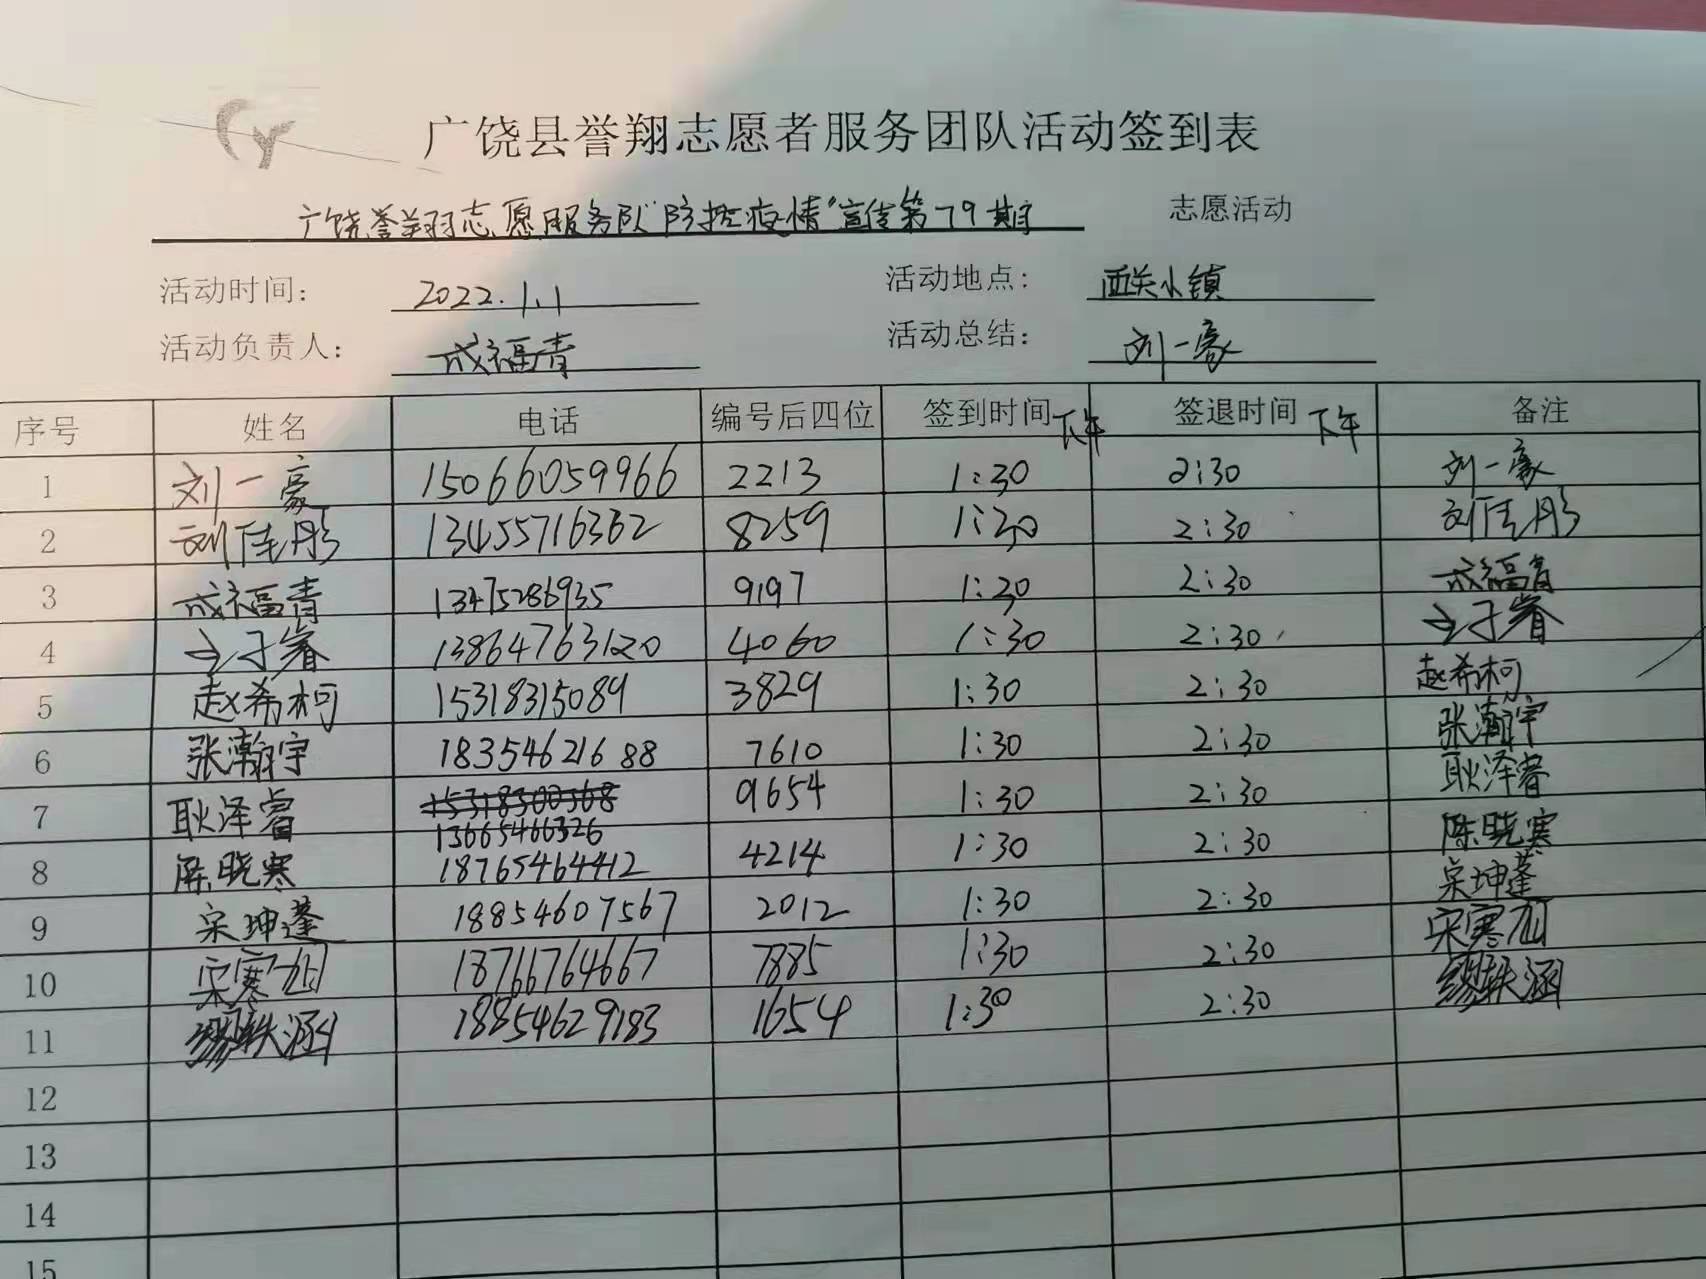 广饶县誉翔志愿者服务团队活动签到表
广饶誉翔志愿服务队“防控疫情”宣传第79期 志愿活动
活动时间： 2022.1.1 活动地点： 西关小镇
活动负责人： 成福青 活动总结： 刘一豪
序号 姓名 电话 编号后四位 签到时间 下午 签退时间 下午 备注
1 刘一豪 15066059966 2213 1:30 2:30 刘一豪
2 刘佳彤 13455716362 8259 1:30 2:30 刘佳彤
3 成福青 13475286935 9197 1:30 2:30 成福青
4 13864763120 4060 1:30 2:30
5 赵希柯 15318315089 3829 1:30 2:30 赵希柯
6 张瀚宇 18354621688 7610 1:30 2:30 张瀚宇
7 耿泽睿 15318300568 9654 1:30 2:30 耿泽睿
13665466326
8 陈晓寒 18765464412 4214 1:30 2:30 陈晓寒
9 宋坤蓬 18854607567 2012 1:30 2:30 宋坤蓬
10 18766764667 7885 1:30 2:30
11 18854629183 1654 1:30 2:30
12
13
14
15